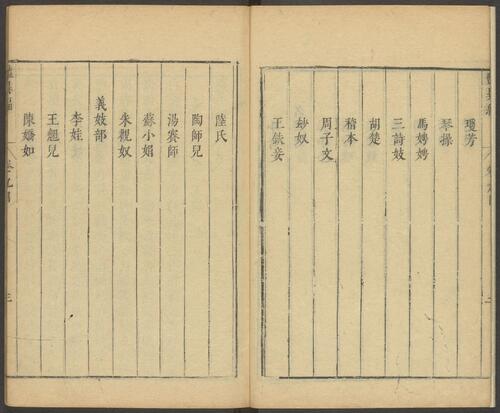 瓊芳
琴操
馬娉娉
三詩妓
胡楚
稽本
周子文
紗奴
王鈇妾
陸氏
陶師兒
湯賽師
蘇小娟
朱觀奴
義妓部
李娃
王翹兒
陳嬌如
三